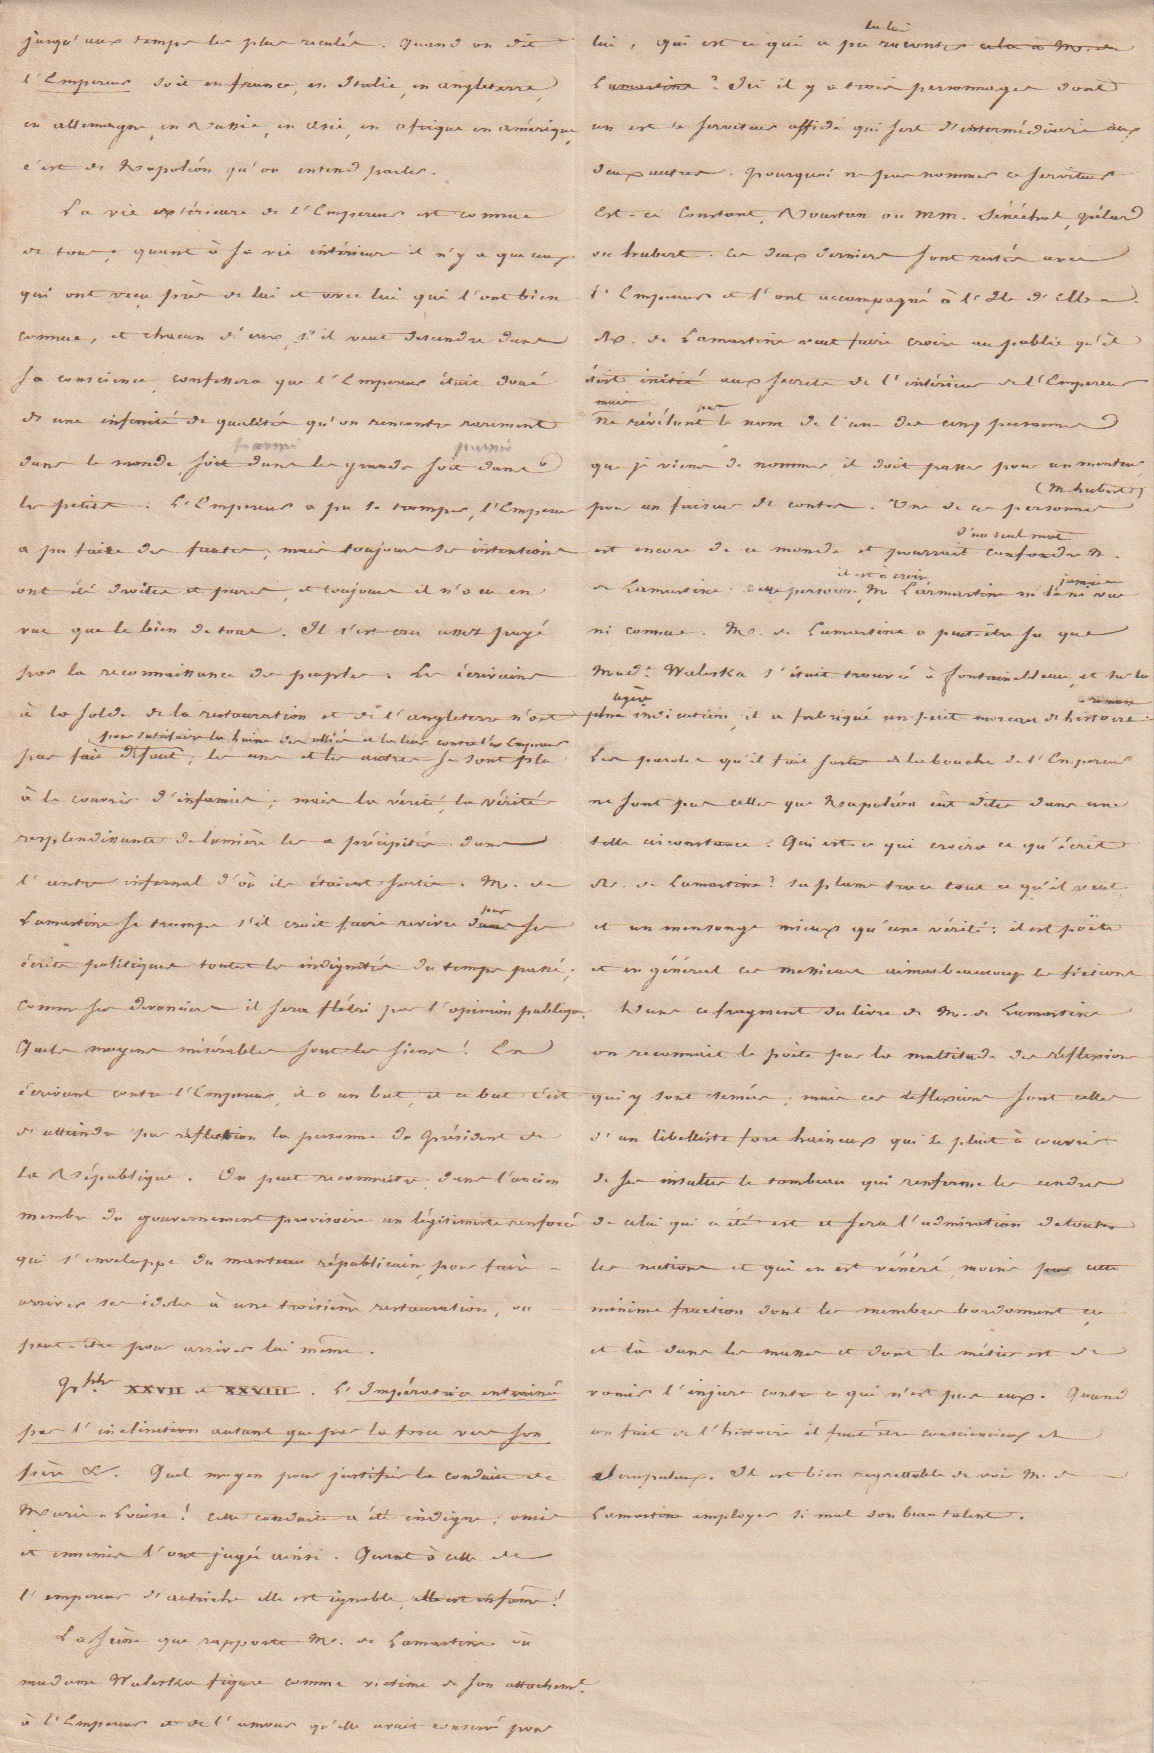 jusqu'aux temps les plus reculés. Quand on dit
l'Empereur soit en france, en Italie, en angleterre,
en allemagne, en Russie, en Asie, en afrique en amérique,
c'est de Napoléon qu'on entend parler.
La vie extérieure de l'Empereur est connue
de tous; quant à sa vie intérieure il n'y a que ceux
qui ont vécu près de lui et avec lui qui l'ont bien
connue, et chacun d'eux, s'il veut descendre dans
sa conscience, confessera que l'Empereur était doué
de une infinité de qualités qu'on rencontre rarement
parmi parmi
dans le monde soit dans les grands soit dans
les petits. L'Empereur a pu se tromper, l'Empereur
a pu faire des fautes, mais toujours ses intentions
ont été droites et pures, et toujours il n'a eu en
vue que le bien de tous. Il s'est cru assez payé
par la reconnaissance des peuples. Les écrivains
à la solde de la restauration et de l'angleterre n'ont
pour satisfaire la haine des alliés et la leur contre l'Empereur
pas fait défaut; les uns et les autres se sont plu
à le couvrir d'infamies; mais la vérité, la vérité
resplendissante de lumière les a précipités dans
l'antre infernal d'où ils étaient sortis. M. de
par
Lamartine se trompe s'il croit faire revivre dans ses
écrits politiques toutes les indignités du temps passé;
comme ses devanciers il sera flétri par l'opinion publique.
Quels moyens misérables sont les siens! En
écrivant contre l'Empereur, il a un but, et ce but c'est
de atteindre par réflection la personne du Président de
la République. On peut reconnaître dans l'ancien
membre du gouvernement provisoire un légitimiste renforcé
qui s'enveloppe du manteau républicain, pour faire
arriver ses idoles à une troisième restauration, ou
peut-être pour arriver lui même.
XXVII et XXVIII. L'Impératrice entrainée
par l'inclination autant que par la force vers son
père &. Quel moyen pour justifier la conduite de
Marie-Louise! Cette conduite a été indigne; amis
et ennemis l'ont jugée ainsi. Quant à celle de
l'empereur d'autriche elle est ignoble, elle est infame!
La scène que rapporte M. de Lamartine où
madame Waleska figure comme victime de son attachemt.
à l'Empereur et de l'amour qu'elle avait conservé pour
la lui
lui, qui est ce qui a pu raconter cela à M. de
Lamartine? Ici il y a trois personnages dont
un est le serviteur affidé qui sert d'intermédiaire aux
deux autres. pourquoi ne pas nommer ce serviteur
Est-ce Constant, Roustan ou MM. Sénéchal, pélard
ou hubert. Ces deux derniers sont restés avec
l'Empereur et l'ont accompagné à l'île d'Elbe.
M. de Lamartine veut faire croire au public qu'il
était initié aux secrets de l'intérieur de l'Empereur
mais pas
ne révélant le nom de l'un des cinq personnes
que je viens de nommer, il doit passer pour un menteur,
(M. hubert)
pour un faiseur de contes. Une de ces personnes
d'un seul mot
est encore de ce monde et pourrait confondre M.
il est à croire jamais
de Lamartine. Cette personne, M. Lamartine ni l'a ni vue
ni connue. M. de Lamartine a peut-être su que
Made. Waleska s'était trouvée à fontainebleau, et sur la
légère roman
plus indication, il a fabriqué un petit morceau de histoire.
Les paroles qu'il fait sortir de la bouche de l'Empereur
ne sont pas celles que Napoléon eût dites dans une
telle circonstance. Qui est-ce qui croira ce qu'écrit
M. de Lamartine? sa plume trace tout ce qu'il veut,
et un mensonge mieux qu'une vérité: il est poëte
et en général ces messieurs aiment beaucoup les fictions
Dans ce fragment du livre de M. de Lamartine
on reconnait le poëte par la multitude des réflexions
qui y sont semées; mais ces réflexions sont celles
d'un libelliste fort haineux qui se plait à couvrir
de ses insultes le tombeau qui renferme les cendres
de celui qui a été est et sera l'admiration de toutes
les nations et qui en est vénéré, moins cette
minime fraction dont les membres bordonnent çà
et là dans les masses et dont le métier est de
vomir l'injure contre ce qui n'est pas eux. Quand
on fait de l'histoire il faut être consciencieux et
scrupuleux. Il est bien regrettable de voir M. de
Lamartine employer si mal son beau talent.